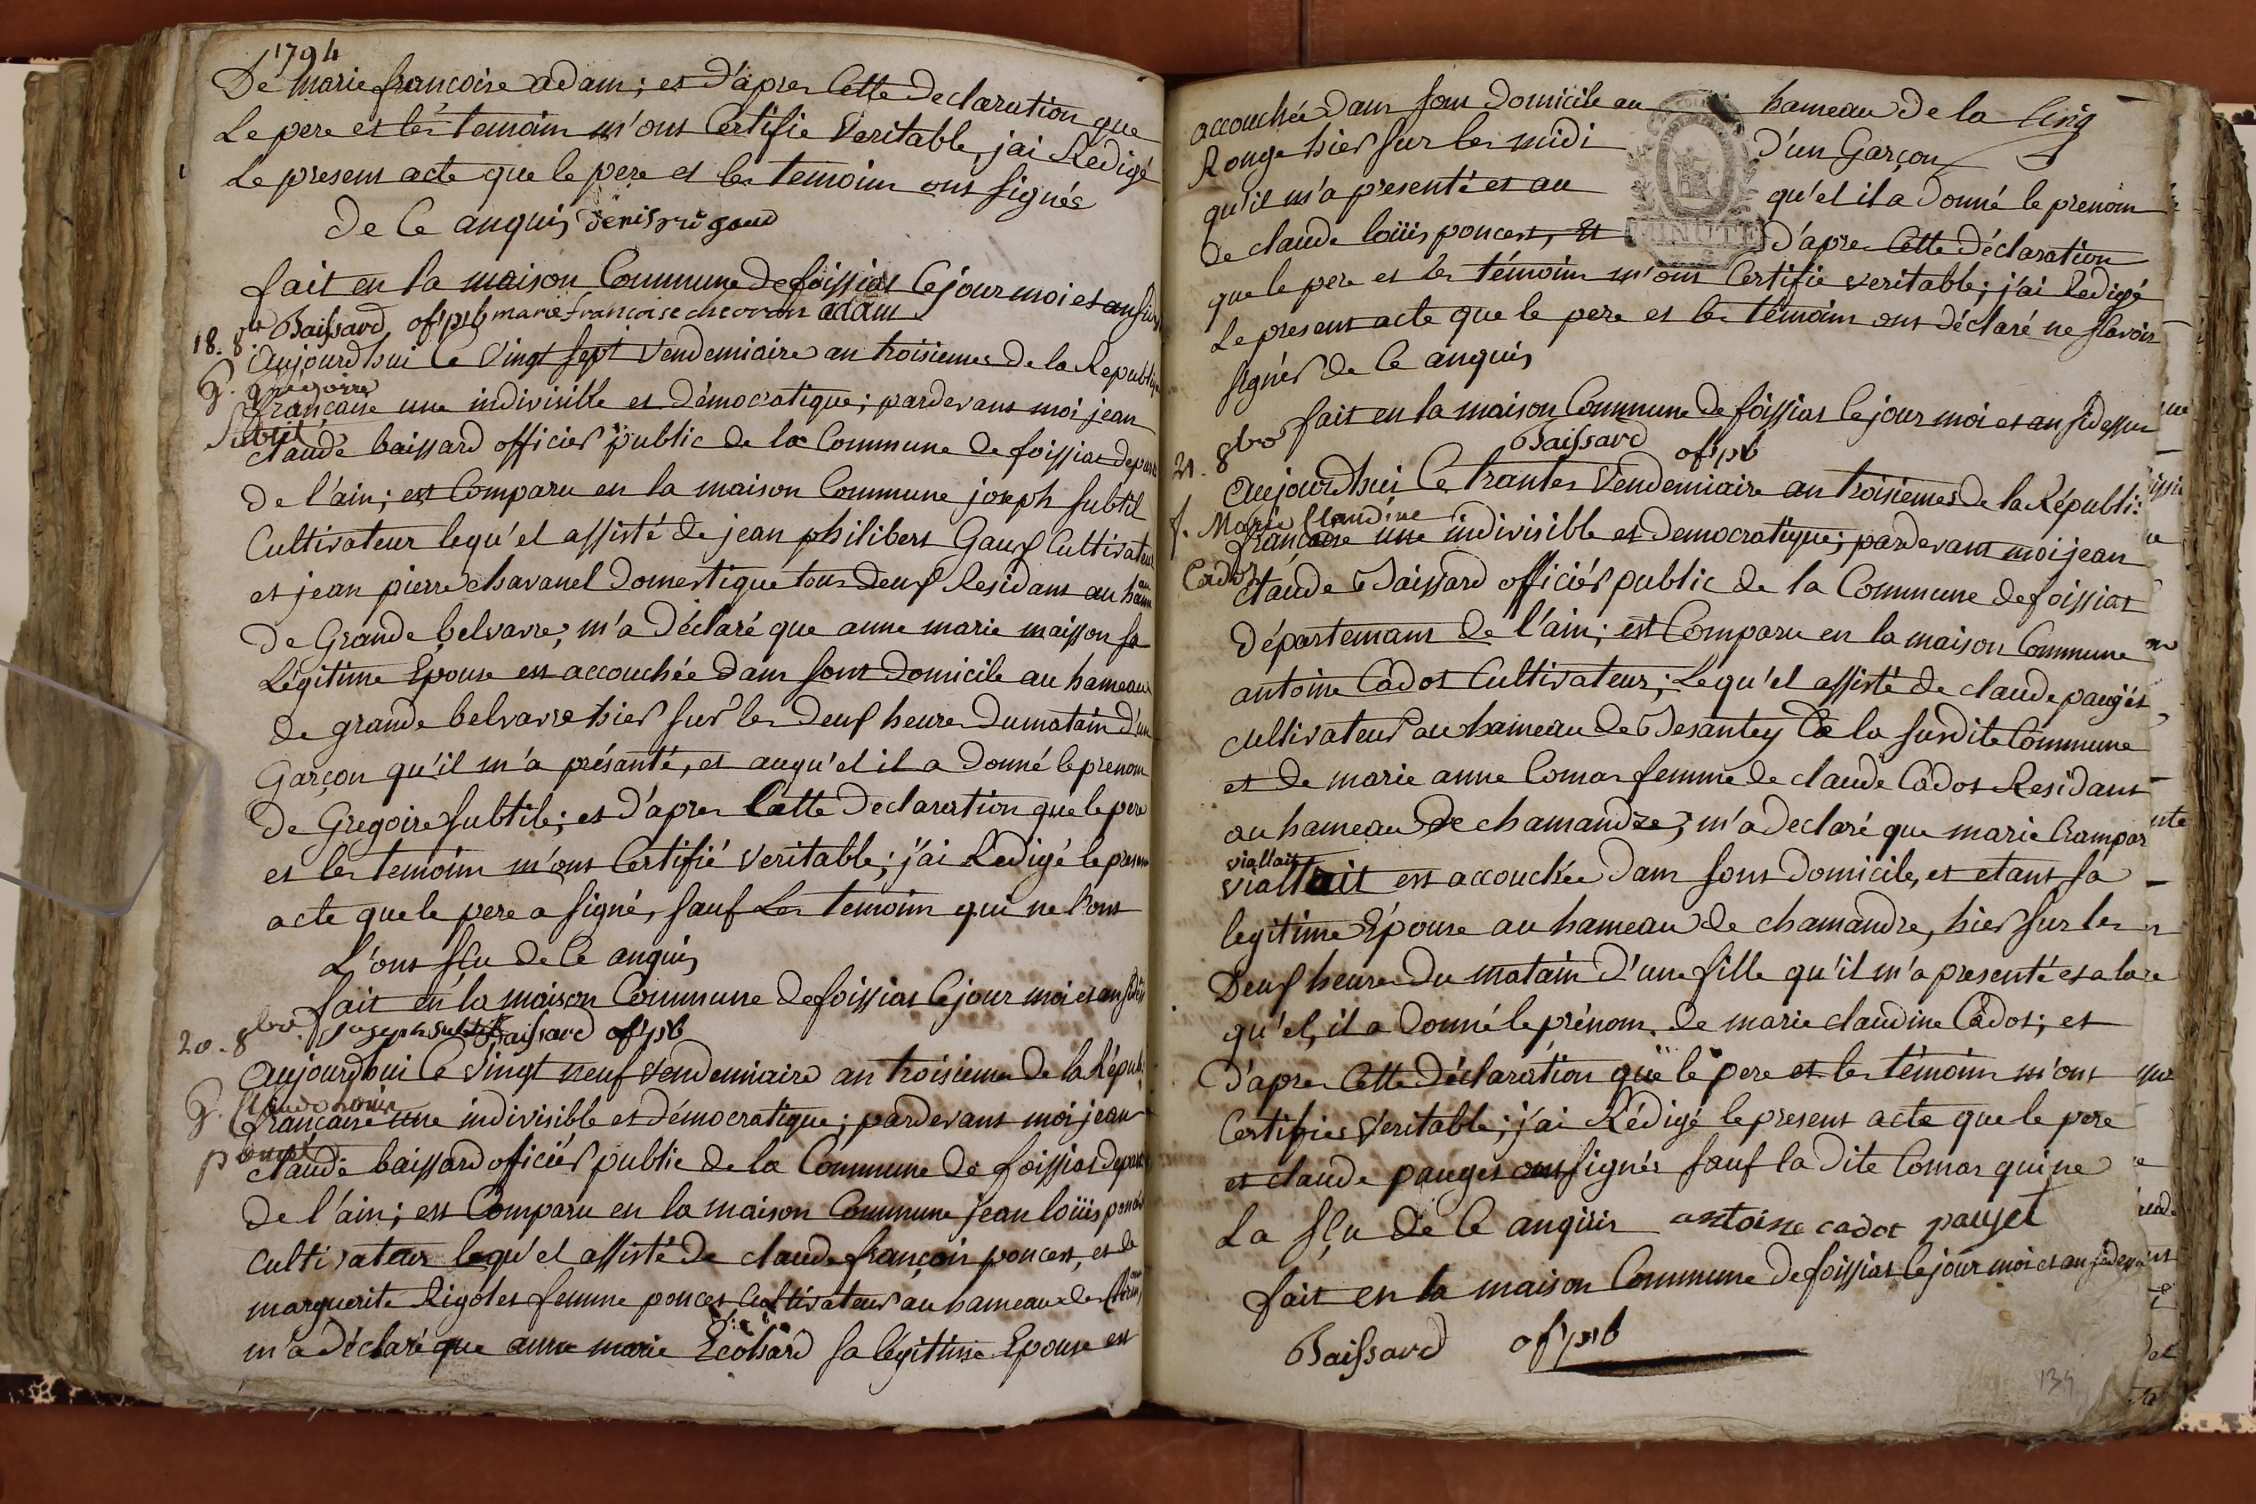 1794
De marie francoise adam; et d'apres Cette Declaration que
Le pere et les temoins m'ons Certifie Veritable, j'ai Redigé
Le present acte que le pere et les temoins ont signés
De Ce anquis Denis rigaud
fait en la maison Commune de foissias Ce jour moi et an
Baissard of pb marie francoise chevron adam
18. 8.bre
Aujourdhui Ce Vingt sept Vendemiaire an troisieme de la Republi
G. gregoire
francaise une indivisible et démocratique; pardevans moi jean
Subtil
claude baissard officier public de la Commune de foissias depar
de l'ain; est Comparu en la maison Commune joseph subtil
Cultivateur lequ'el assisté de jean philibert Gauf Cultivateur
et jean pierre chavanel Domestique tous Deuf Residans au ham
De Grande belvavre; m'a Déclaré que anne marie maisson sa
Légitime Epouse est accouchée Dans sons Domicile au hameau
de grande belvavre hier sur les Deuf heure Dumatain d'un
Garçon qu'il m'a présanté, et auqu'el il a Donné le prenom
De Gregoire subtile; et d'apres Catte Declaration que le pere
et les temoins m'ons Certifié Veritable; j'ai Redigé le presen
acte que le pere a signé, sauf Les temoins qui ne l'ons
L'ons sçu de Ce anquis
fait en la maison Commune de foissias Ce jour moi et an
joseph subtil Baissard of pb
20. 8.bre
Aujourdhui Ce Vingt neuf Vendemiaire an troisieme de la Répub
G. Claude Louis
francaise une indivisible et démocratique; pardevans moi jean
poncet
claude baissard officiér public de la Commune de foissias depar
de l'ain; est Comparu en la maison Commune jean loüis ponce
Cultivateur lequ'el assisté de claude françois poncest, et de
marguerite Rigolet femme poncet Cultivateur au hameau de
m'a Déclaré que anne marie Ecohard sa légitime Epouse est
accouchée Dans sons Domicile au hameau De la Cing
Rouge hier sur les midi D'un Garçon
qu'il m'a presenté et au qu'el il a Donné le prenom
De claude loüis poncest, Et d'apres Cette Déclaration
MINUTE
que le pere et les témoins m'ons Certifie veritable; j'ai Redigé
Le present acte que le pere et les témoins ons déclaré ne sçavoir
signér de Ce anquis
fait en la maison Commune de foissias le jour moi et an sidessus
Baissard of pb
21. 8bre
Aujourdhui Ce trantes Vendemiaire an troisiemes de la Républi:
f. Marie Claudine
francaise une indivisible et democratique; pardevans moi jean
Cadot
claude Baissard officiér public de la Commune de foissias
Département de l'ain; est Comparu en la maison Commune
antoine Cadot Cultivateur; Lequ'el assisté de claude paugét
cultivateur au hameau de Desantey De la surdite Commune
et de marie anne Comas femme de claude Cadot Residans
au hameau de chamandre; m'a declaré que marie Crampar
viallait
viallait est accouchée Dans sons Domicile, et etant sa
legitime Epouse au hameau de chamandre, hier sur les
Deuf heure Du matain D'une fille qu'il m'a presenté et a la
qu'el, il a Donné le prénom de marie claudine Cadot; et
D'apres Cette déclaration que le pere et les témoins m'ons
Certifies Veritable; j'ai Rédigé le present acte que le pere
et claude pauget ons signés sauf la Dite Comas qui ne
La sçu de Ce anquis antoine cadot pauget
fait en la maison Commune de foissias le jour moi et an
Baissard of pb
134